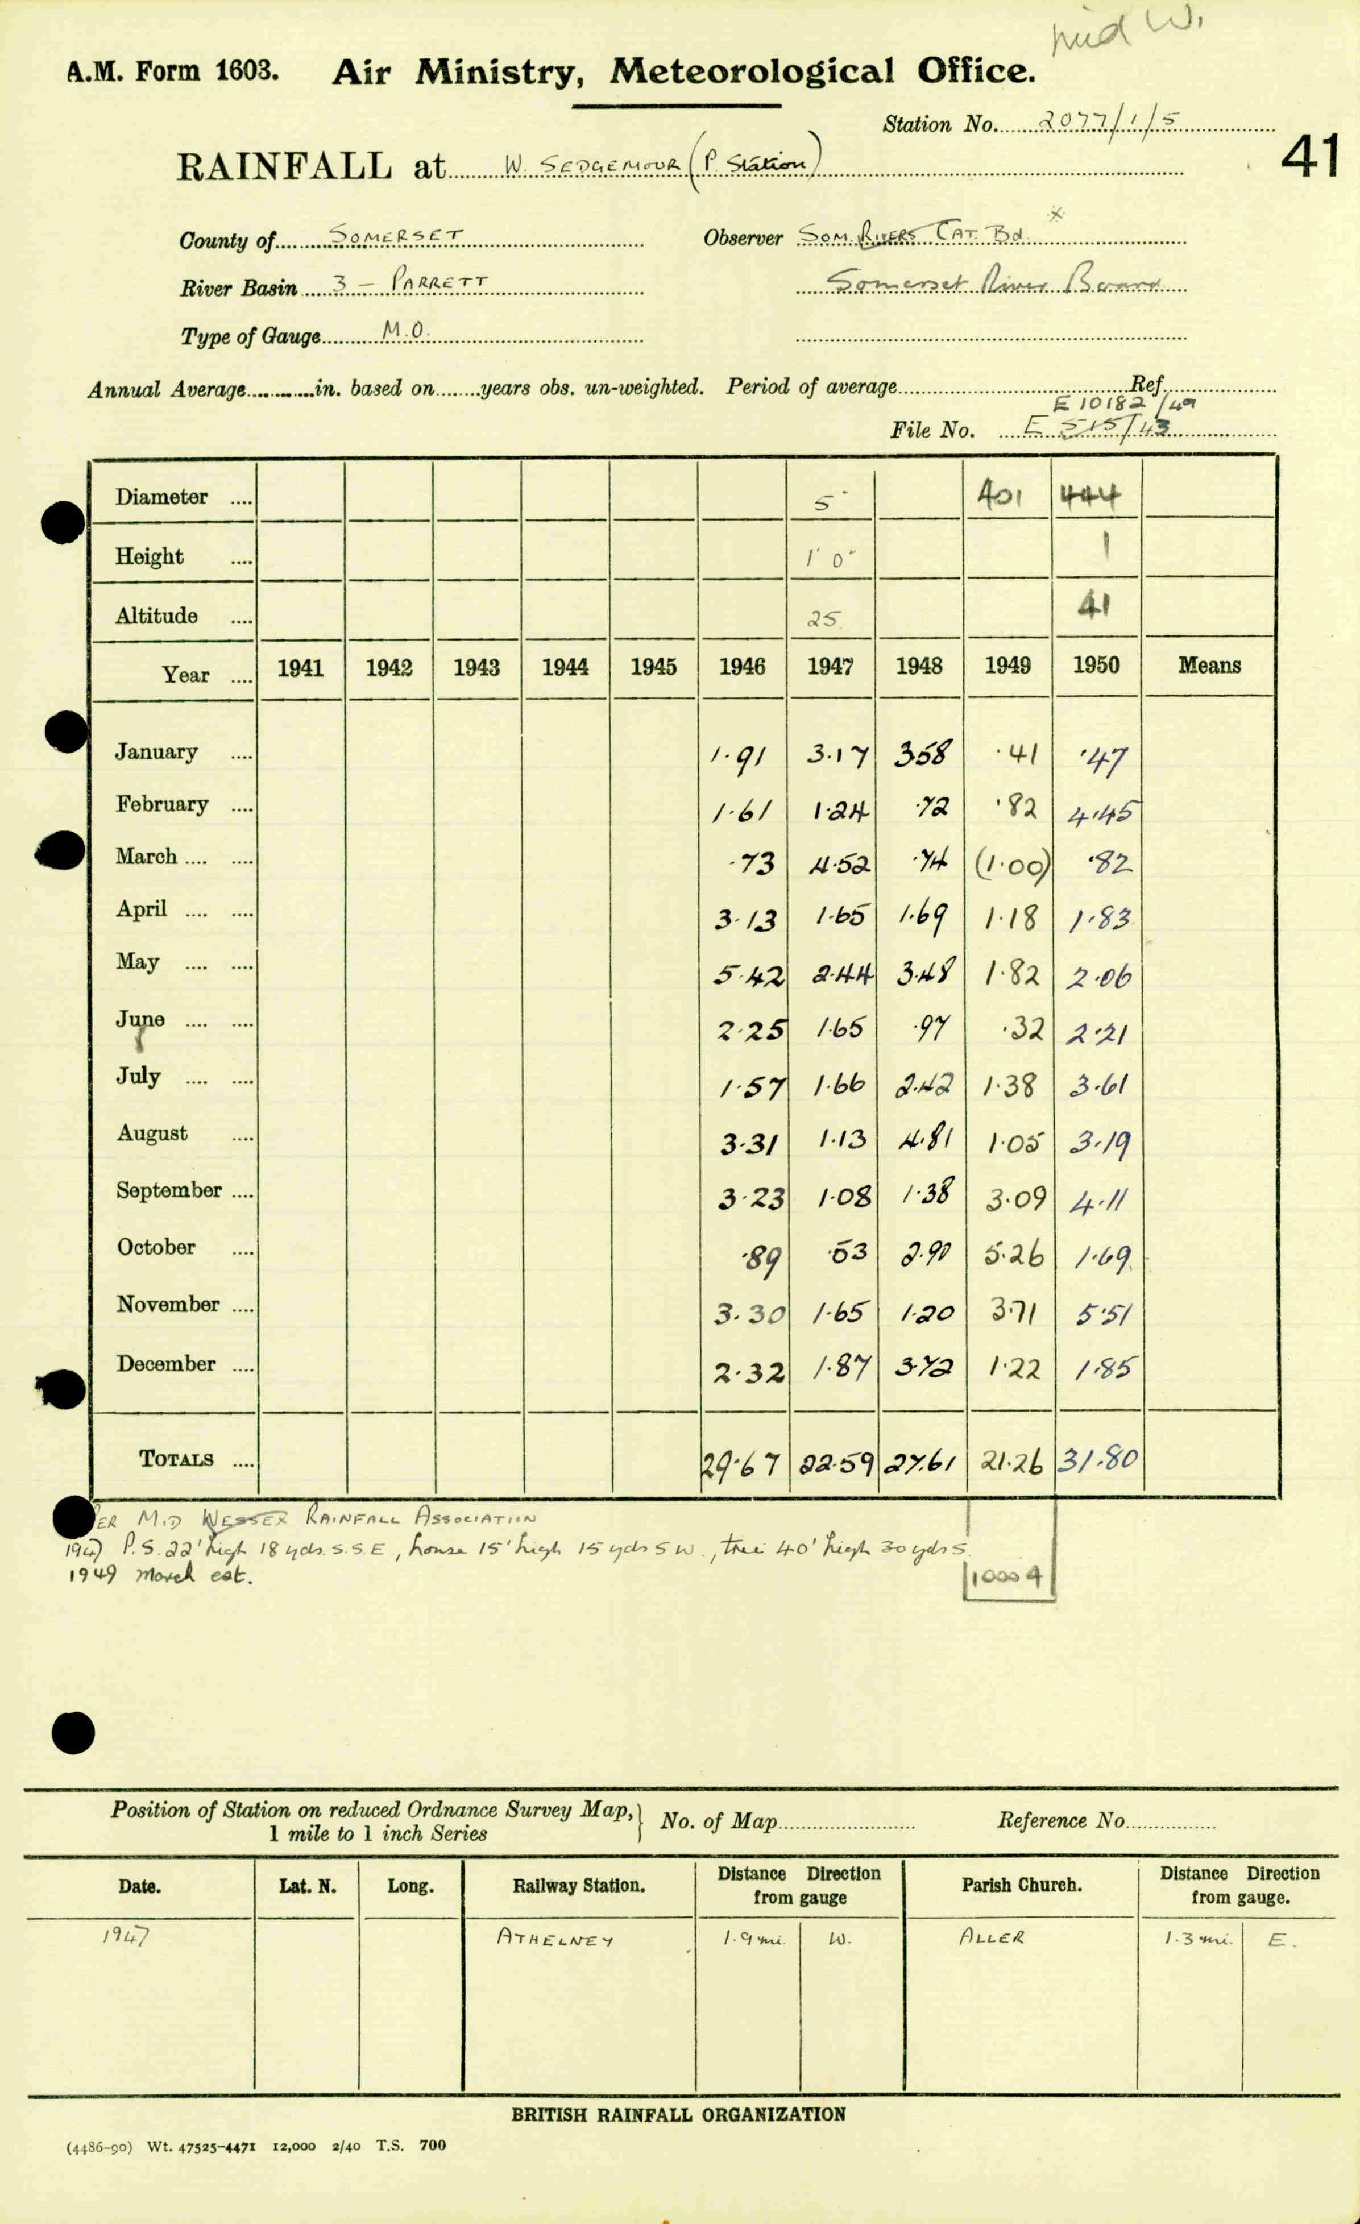 Mid W.
A.M. Form 1603. Air Ministry, Meteorological Office.
Station No. 2077/1/5
41
RAINFALL at W. SEDGEMOUR (P. Station)
County of SOMERSET Observer SOM. RIVERS CAT. Bd. *
River Basin 3 – PARRETT Somerset River Board
Type of Gauge M.O.
Annual Average in. based on years obs. un-weighted. Period of average Ref.
E 10182/49
File No. E 515/43
Diameter 5" 401 444
Height 1' 0" 1
Altitude 25 41
Year 1941 1942 1943 1944 1945 1946 1947 1948 1949 1950 Means
January 1.91 3.17 3.58 .41 .47
February 1.61 1.24 .72 .82 4.45
March .73 4.52 .74 (1.00) .82
April 3.13 1.65 1.69 1.18 1.83
May 5.42 2.44 3.48 1.82 2.06
June 2.25 1.65 .97 .32 2.21
July 1.57 1.66 2.42 1.38 3.61
August 3.31 1.13 4.81 1.05 3.19
September 3.23 1.08 1.38 3.09 4.11
October .89 .53 2.90 5.26 1.69
November 3.30 1.65 1.20 3.71 5.51
December 2.32 1.87 3.72 1.22 1.85
TOTALS 29.67 22.59 27.61 21.26 31.80
PER MID WESSEX RAINFALL ASSOCIATION
1947 P.S. 22' high 18 yds. S.S.E, house 15' high 15 yds S W., tree 40' high 30 yds S.
1949 March est.
10009
Position of Station on reduced Ordnance Survey Map, 1 mile to 1 inch Series } No. of Map Reference No.
Date. Lat. N. Long. Railway Station. Distance Direction from gauge Parish Church. Distance Direction from gauge.
1947 ATHELNEY 1.9 mi. W. ALLER 1.3 mi. E.
BRITISH RAINFALL ORGANIZATION
(4486-90) Wt. 47525-4471 12,000 2/40 T.S. 700